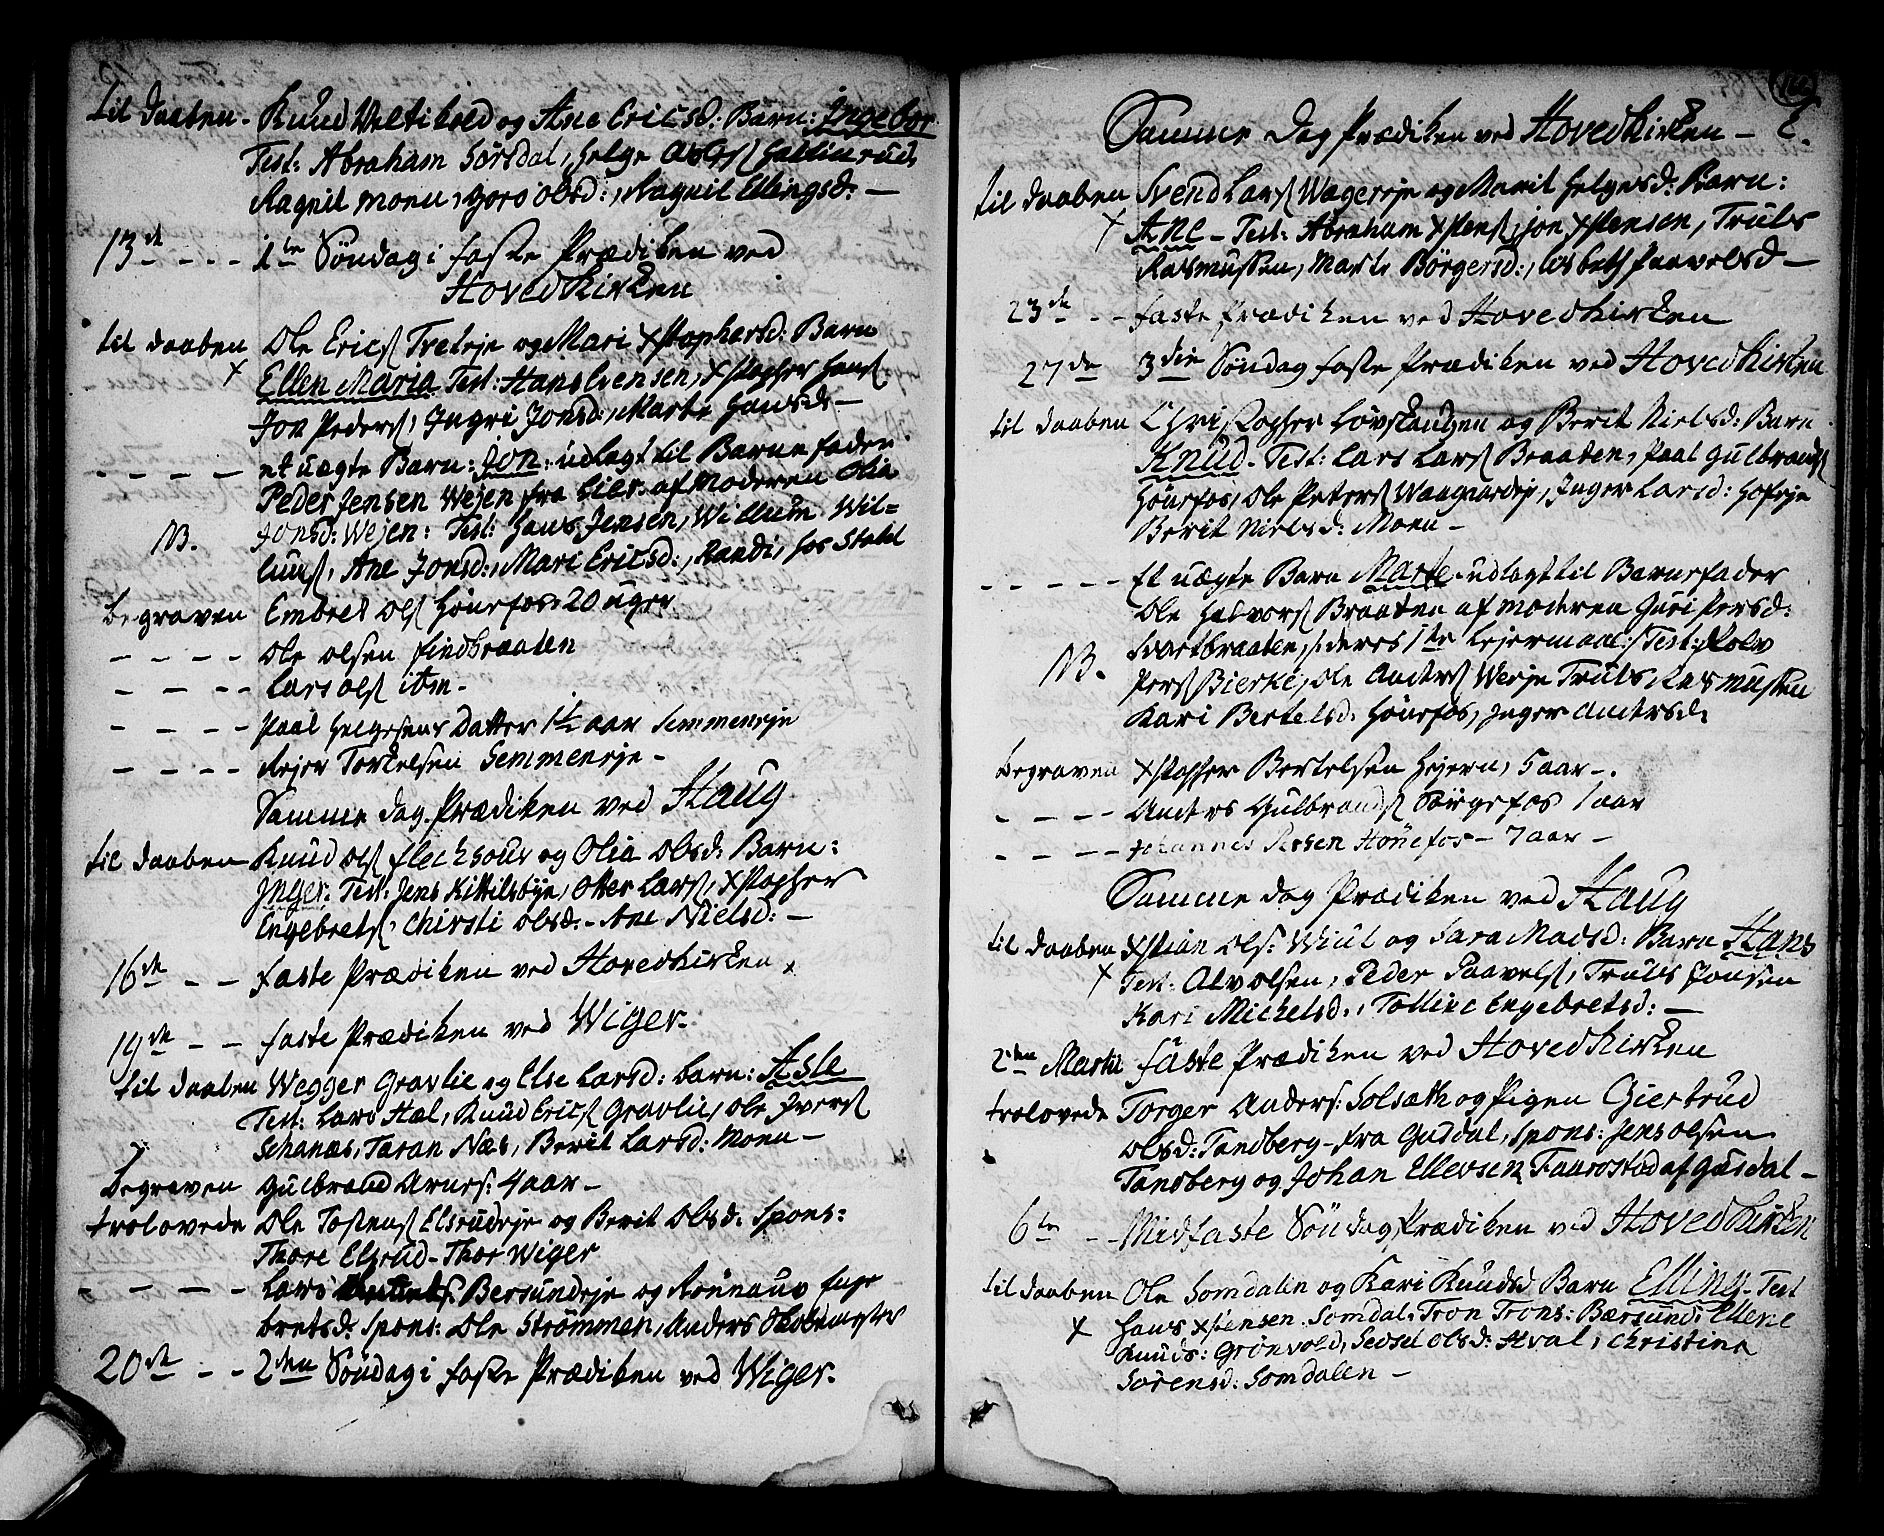 til daaben - Knud Veltikold og Ane Ericsd: Barn: Ingebor
Test: Abraham Sørsdal, Helge Olss Hallinrud,
Ragnil Moen, Goro Olsd:, Ragnil Ellingsd: —
13de - - - 1te Søndag i Faste Prædiken ved
HovedKirken
til daaben Ole Erics Tveteje og Mari Xstophersd: Barn
x Ellen Maria Test: Hans Evensen, Xstopher Hans
Jon Peders, Ingri Jonsd:, Marte Hansd: —
- - - - et uægte Barn: Jon: udlagt til Barnefader
Peder Jensen Wejen fra Lier af Moderen Olia
NB. Jonsd: Wejen: Test: Hans Jensen, Willum Wil=
lums, Ane Jonsd:, Mari Ericsd:, Randi, hos Stabel
begraven Embret Ols Hønefos 20 uger
- - - - Ole Olsen Findbraaten
- - - - Lars Ols item -
- - - - Paal Helgesens Datter 1½ aar Semmeneje
- - - - Rejer Torkelsen Semmeneje -
Samme dag Prædiken ved Haug
til daaben Knud Ols Flesksour og Olia Olsd: Barn:
Inger: Test: Jens Kittilsbye, Otter Lars, Xstopher
Engebrets, Chirsti Olsd: - Ane Nielsd: —
16de - - Faste Prædiken ved HovedKirken
19de - - Faste Prædiken ved Wiger.
til daaben Wegger Gravlie og Else Larsd: barn: Asle
Test: Lars Hæl, Knud Erics Gravlie, Ole Ivers
Schanæs, Taran Næs, Berit Larsd: Moen —
begraven Gulbrand Arnes: 4 aar -
trolovede Ole Tostens Elsrudeje og Berit Olsd: Spons:
Thore Elsrud - Thor Wiger
- - - - Lars Bersundeje og Rønnaug Enge
bretsd: Spons: Ole Strømmen, Anders Skolemester
20de - - 2den Søndag i Faste Prædiken ved Wiger.
Samme Dag Prædiken ved HovedKirken -
til daaben Svend Lars Wagereje og Marit Helgesd: Barn:
x Ane - Test: Abraham Xstens, Jon Xstensen, Truls
Rasmussen, Marte Børgersd:, Lisbeth Paavelsd —
23de - - Faste Prædiken ved HovedKirken
27de 3die Søndag Faste Prædiken ved HovedKirken
til daaben Christopher Løvskaugen og Berit Nielsd: Barn
Knud - Test: Lars Lars Braaten, Paal Gulbrands
Hønefos, Ole Peters Waagaardeje, Inger Larsd: Hofeje
Berit Nielsd: Moen -
- - - - - Et uægte Barn Marte - udlagt til Barnefader
Ole Halvors Braaten af Moderen Guri Persd:
NB. Svartbraaten, deres 1te Lejermaal: Test: Rolv
Pers Bierke, Ole Anders Weeje Truls Rasmussen
Kari Bertelsd: Hønefos, Inger Andersd:
begraven Xstopher Bertelsen Hejern, 5 aar -.
- - - - Anders Gulbrands Børgefos 1 aar
- - - - Johannes Persen Hønefos - 7 aar -
Samme dag Prædiken ved Haug
til daaben Xstian Ols: Wiul og Sara Madsd: Barn Hans
x Test: Alv Olsen, Peder Paavels, Truls Jonsen
Kari Michelsd:, Tolline Engebretsd: —
2den Martii Faste Prædiken ved HovedKirken
trolovede Torger Anders: Solsæth og Pigen Giertrud
Olsd: Tandberg - fra Gusdal, Spons: Jens Olsen
Tandberg og Johan Ellevsen Faurostad af Gusdal -
6te - - Midfaste Søndag Prædiken ved HovedKirken
til daaben Ole Somdalen og Kari Knudsd Barn Elling - Test
x Hans Xstensen Somdal: Tron Trons: Bærsund: Ellene
Knuds: Grønvold, Sedsel Olsd: Hval, Christina
Sørensd: Somdalen -